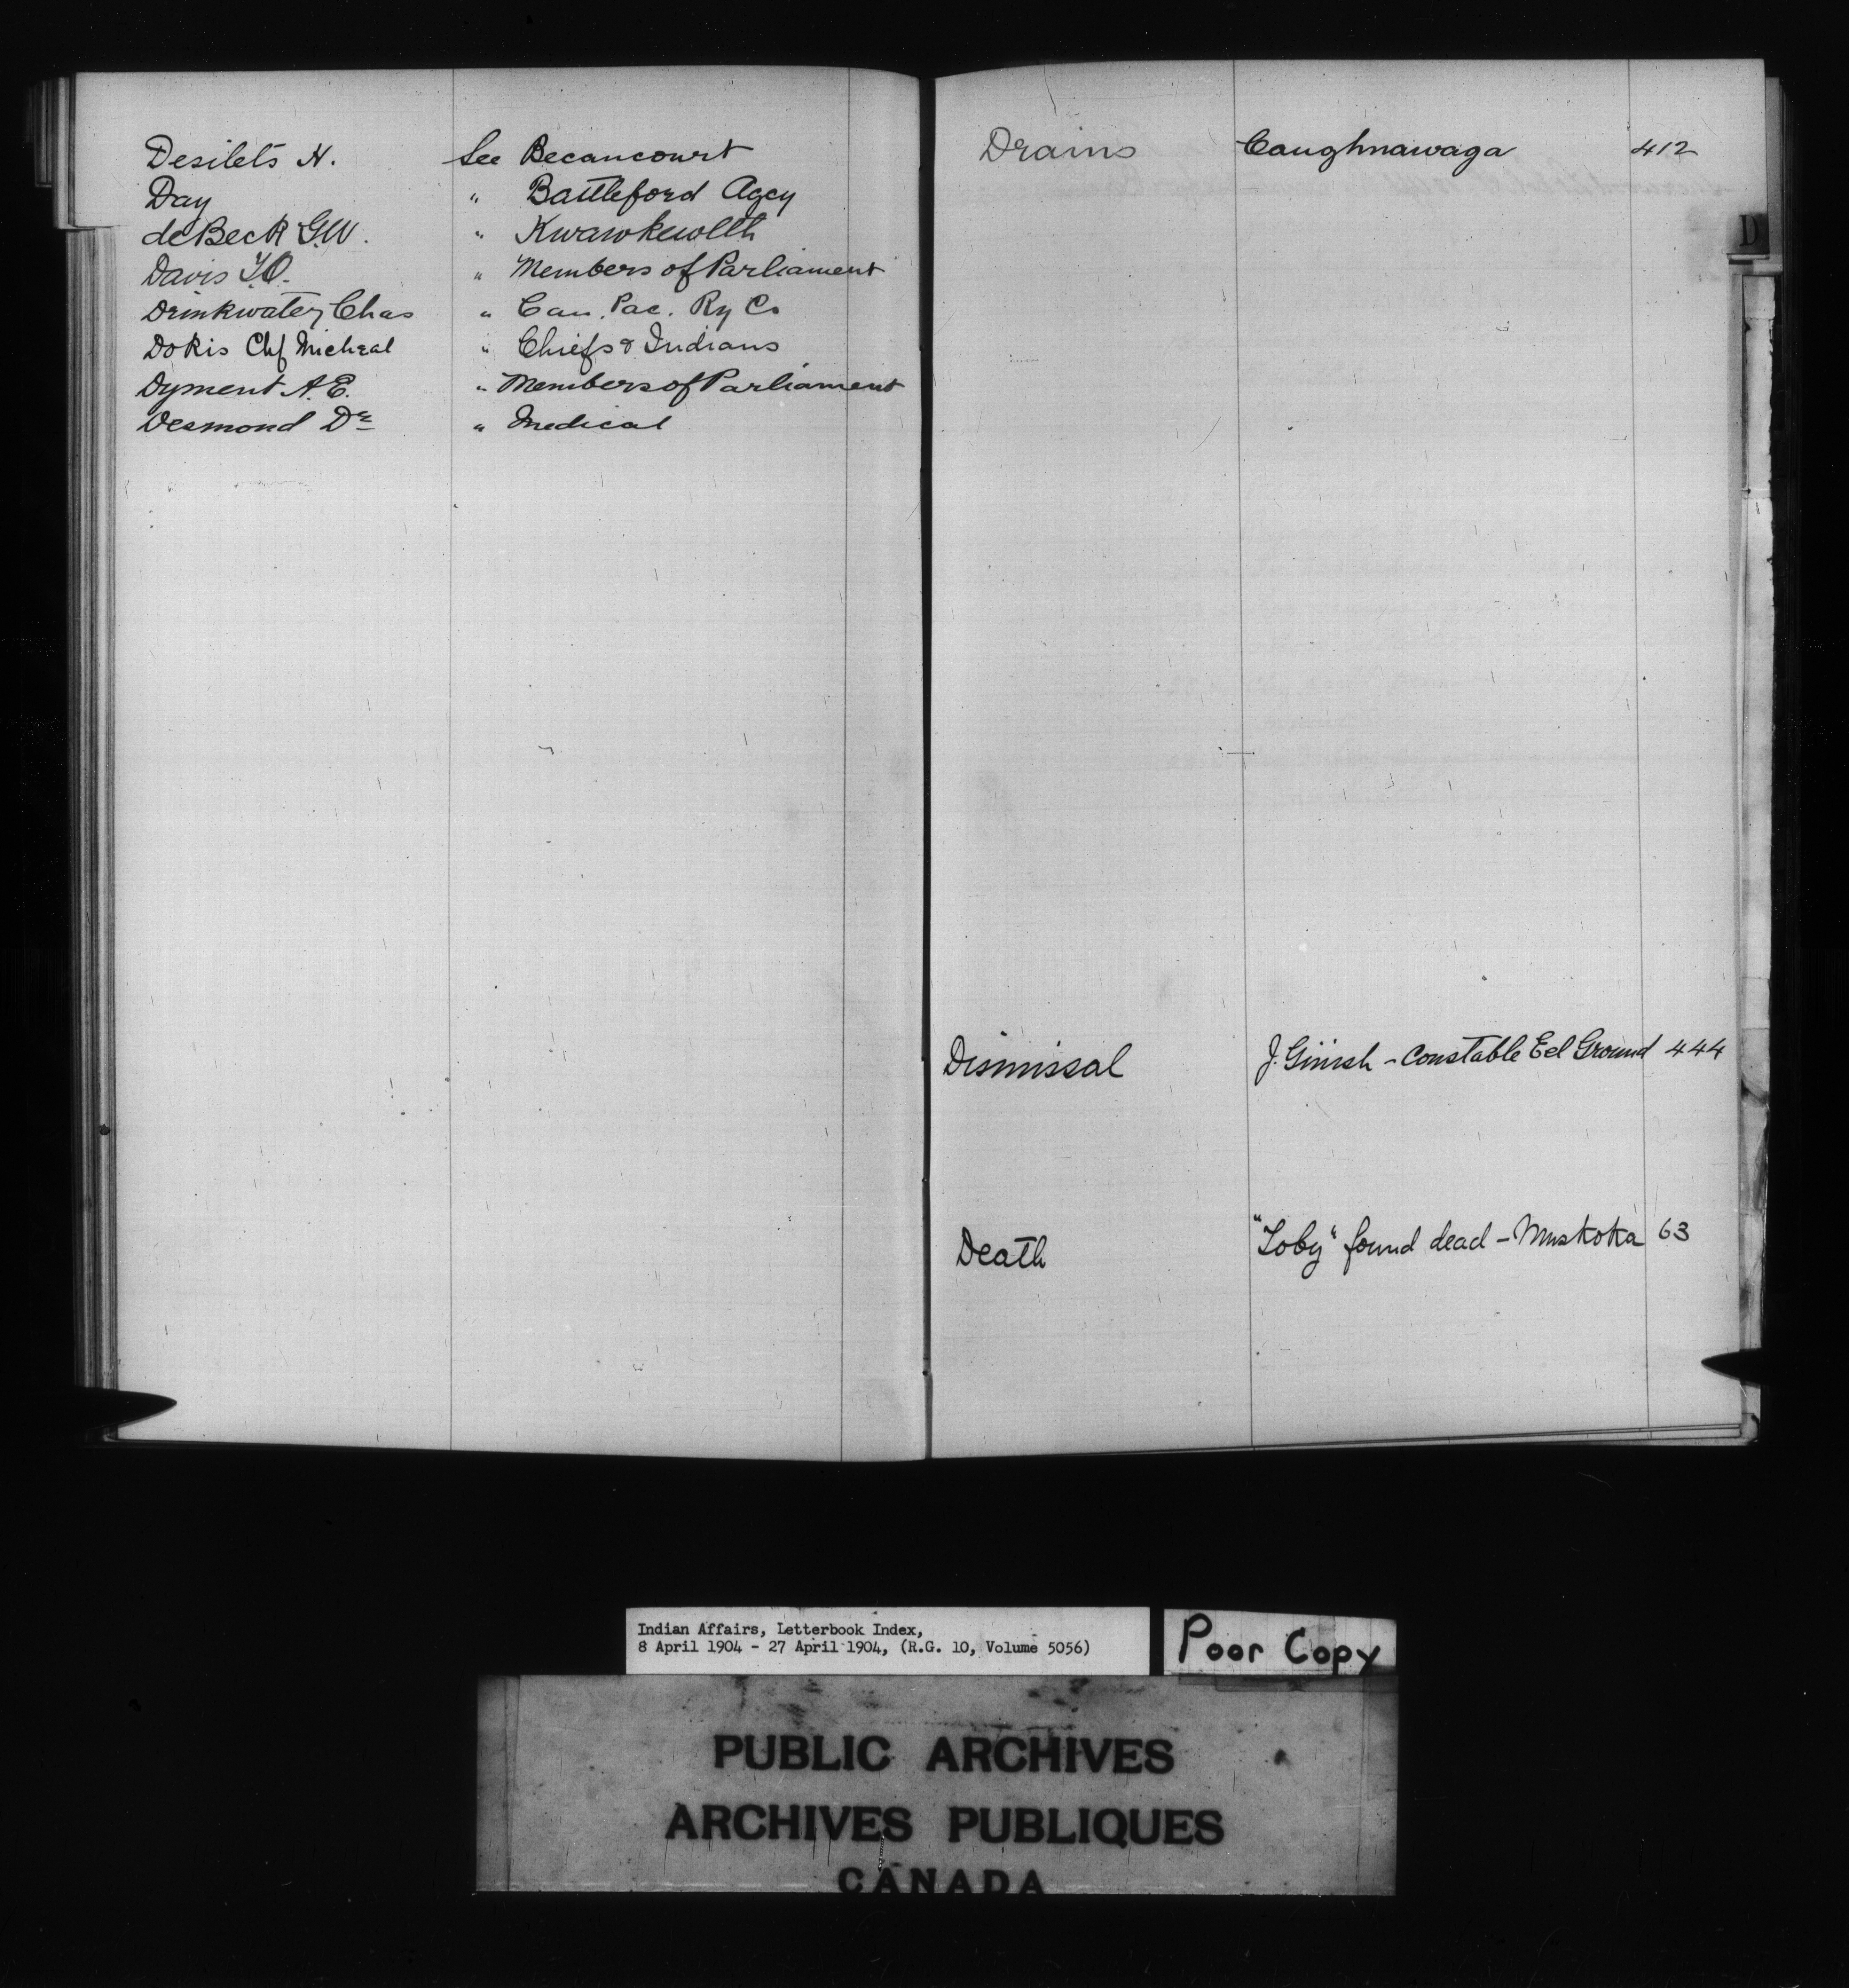 Desilets N. See Becancourt
Day " Battleford Agcy
deBeck G.W. " Kwawkewlth
Davis T.O. " Members of Parliament
Drinkwater Chas " Can. Pac. Ry Co
Dokis Chf Micheal " Chiefs & Indians
Dyment A.E. " Members of Parliament
Desmond Dr " Medical
Drains Caughnawaga 412
D
Dismissal J. Ginish - Constable Eel Ground 444
Death "Toby" found dead - Muskoka 63
Indian Affairs, Letterbook Index,
8 April 1904 - 27 April 1904, (R.G. 10, Volume 5056)
Poor Copy
PUBLIC ARCHIVES
ARCHIVES PUBLIQUES
CANADA